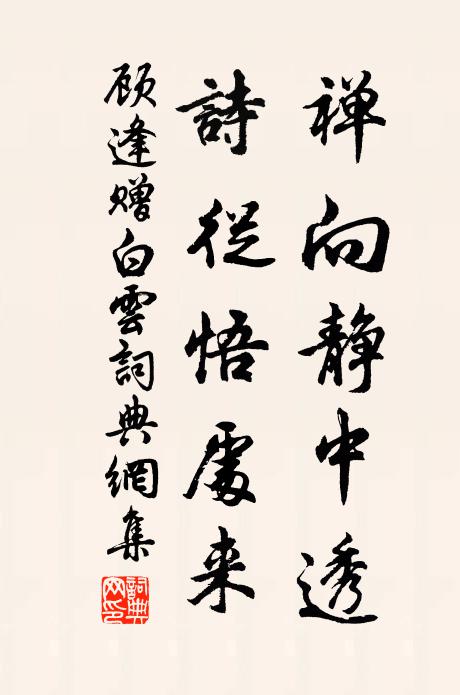 禅向静中透
詩從悟處来
顾逢赠白雲詞典網集
詞典网印